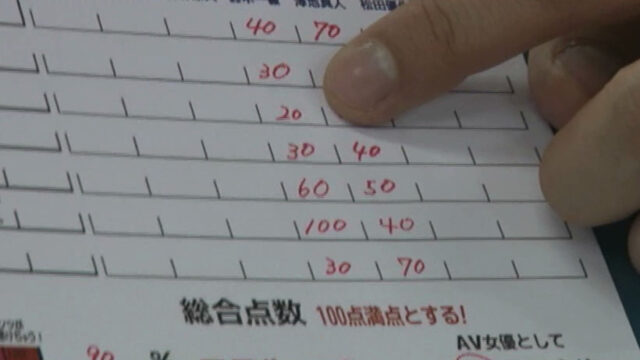 40 70
30
20
30 40
60 50
100 40
30 70
総合点数 100点満点とする!
AV女優として
90 %